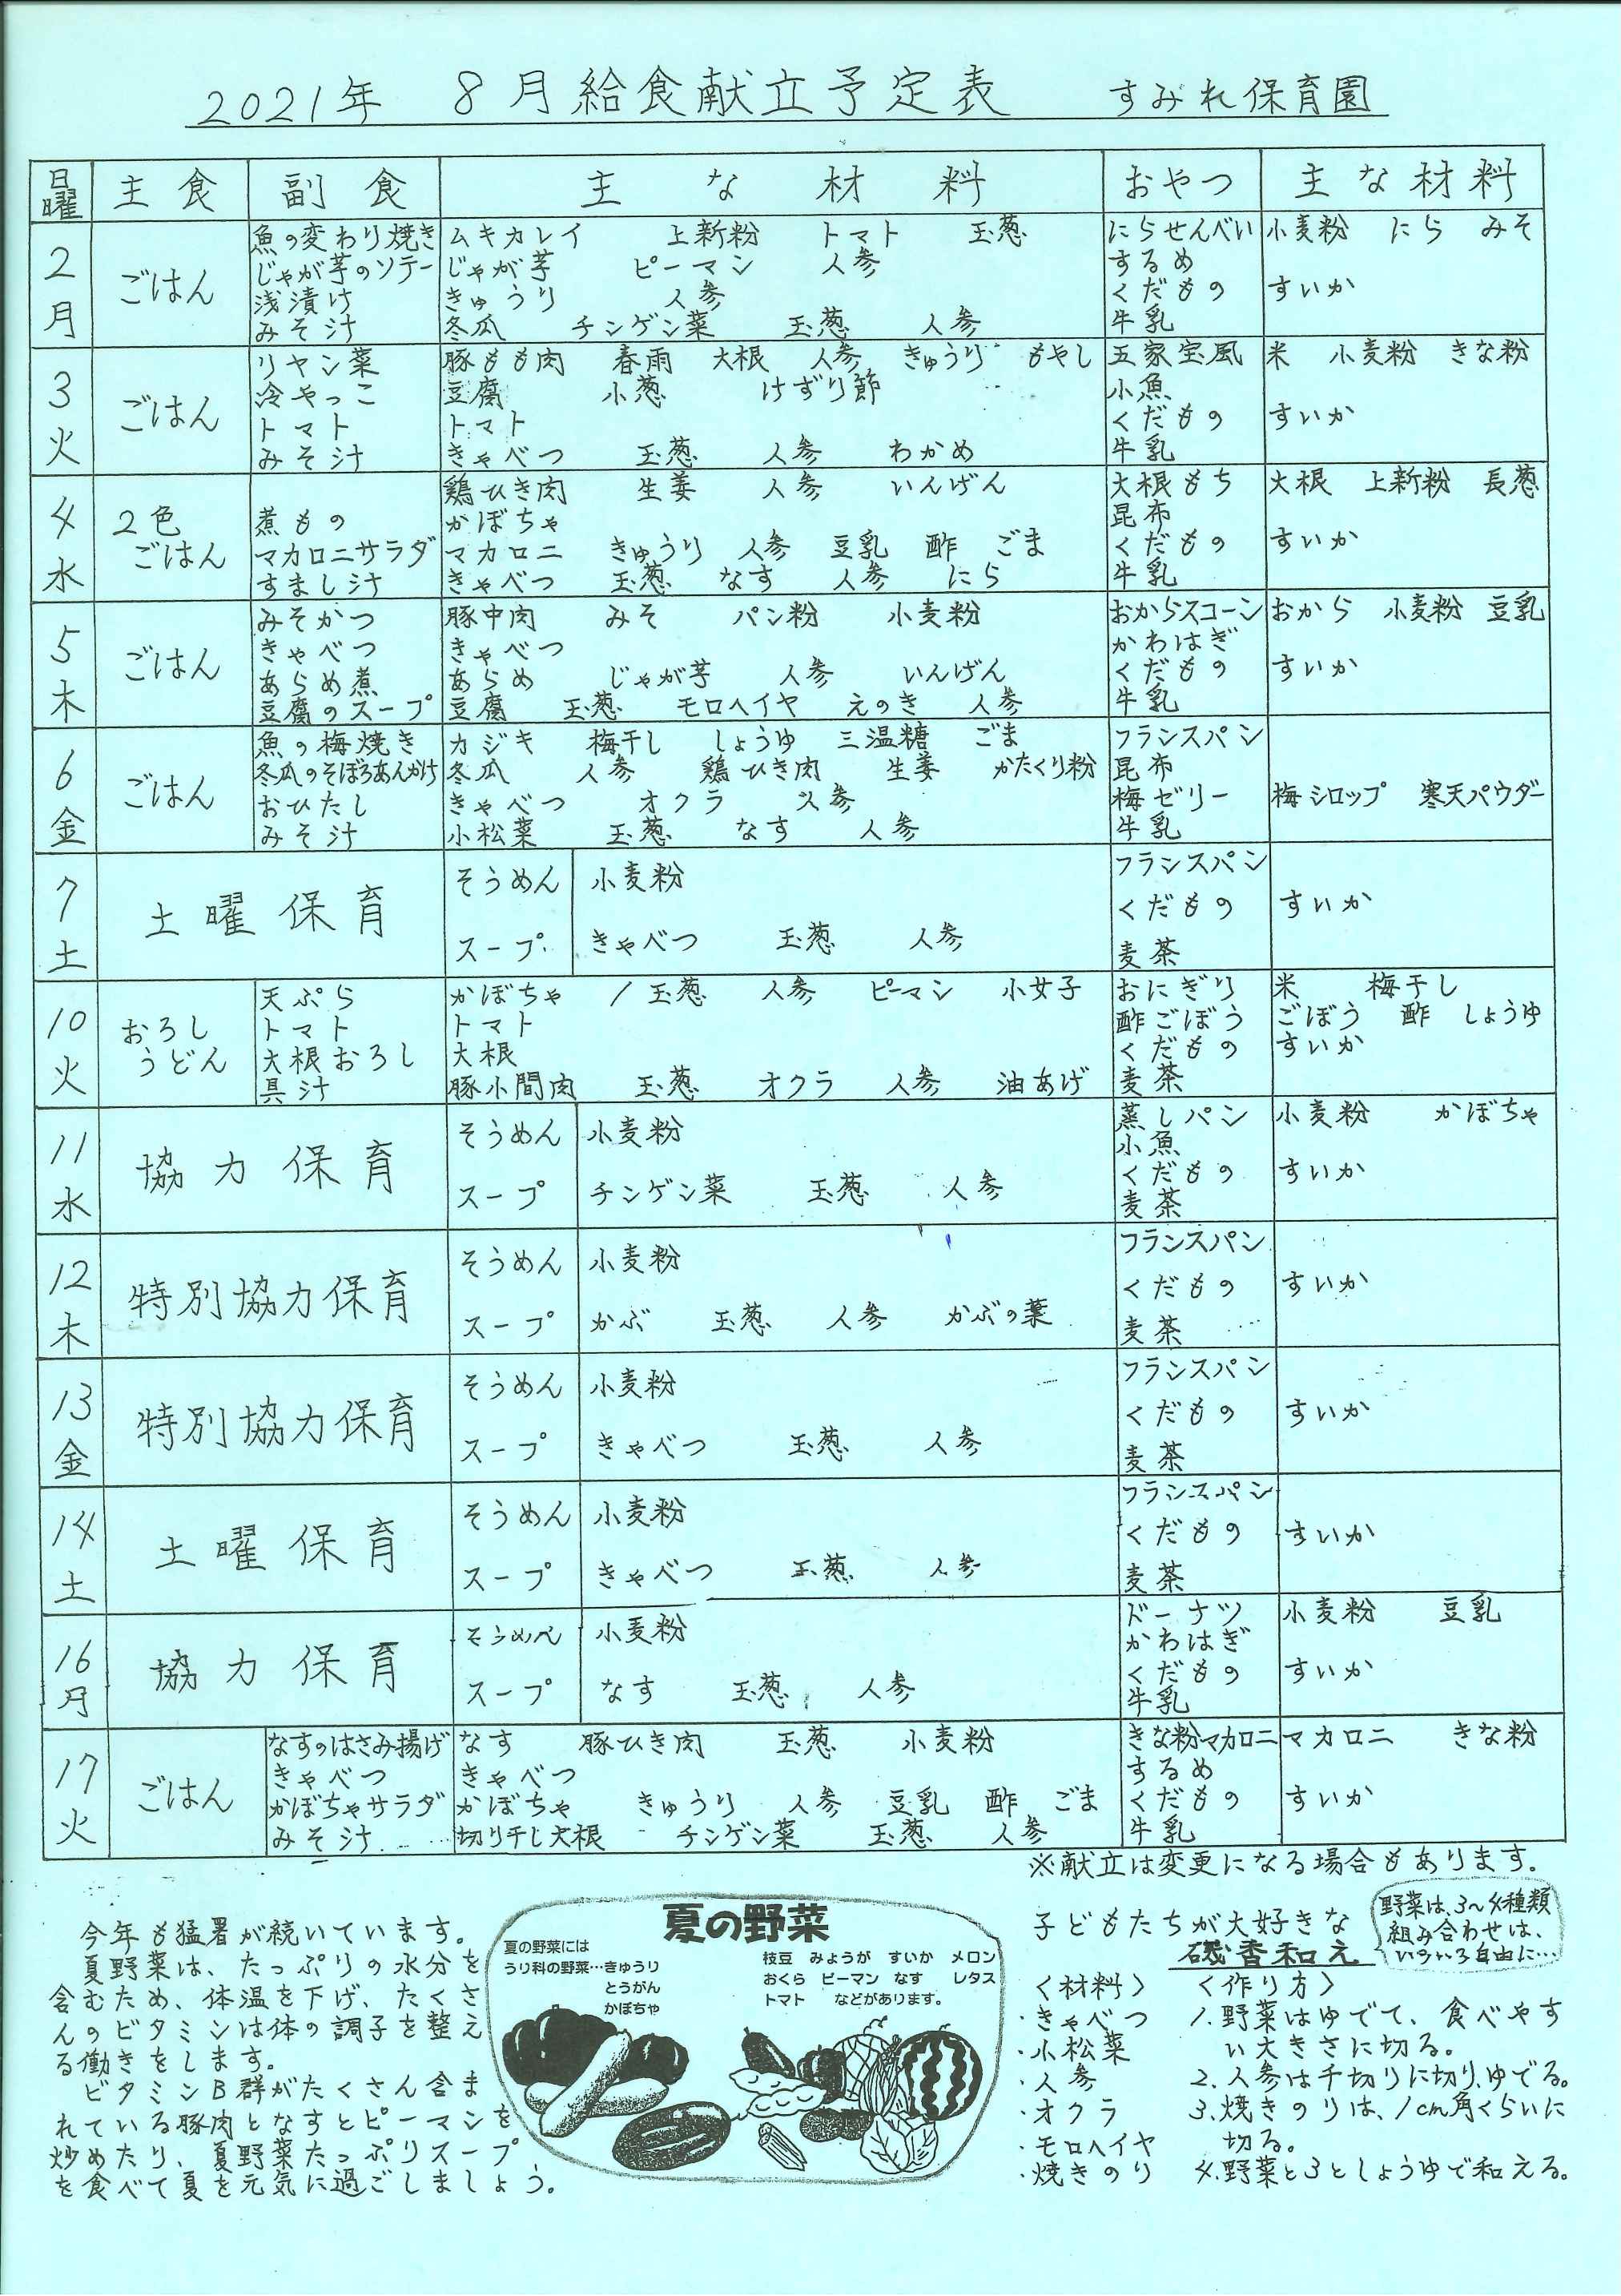 2021年 8月給食献立予定表 すみれ保育園
日曜 主食 副食 主な材料 おやつ 主な材料
2月 ごはん
魚の変わり焼き ムキカレイ 上新粉 トマト 玉葱 にらせんべい 小麦粉 にら みそ
じゃが芋のソテー じゃが芋 ピーマン 人参 するめ
浅漬け きゅうり 人参 くだもの すいか
みそ汁 冬瓜 チンゲン菜 玉葱 人参 牛乳
3火 ごはん
リャン菜 豚もも肉 春雨 大根 人参 きゅうり もやし 五家宝風 米 小麦粉 きな粉
冷やっこ 豆腐 小葱 けずり節 小魚
トマト トマト くだもの すいか
みそ汁 きゃべつ 玉葱 人参 わかめ 牛乳
4水 2色ごはん
鶏ひき肉 生姜 人参 いんげん 大根もち 大根 上新粉 長葱
煮もの かぼちゃ 昆布
マカロニサラダ マカロニ きゅうり 人参 豆乳 酢 ごま くだもの すいか
すまし汁 きゃべつ 玉葱 なす 人参 にら 牛乳
5木 ごはん
みそかつ 豚中肉 みそ パン粉 小麦粉 おからスコーン おから 小麦粉 豆乳
きゃべつ きゃべつ かわはぎ
あらめ煮 あらめ じゃが芋 人参 いんげん くだもの すいか
豆腐のスープ 豆腐 玉葱 モロヘイヤ えのき 人参 牛乳
6金 ごはん
魚の梅焼き カジキ 梅干し しょうゆ 三温糖 ごま フランスパン
冬瓜のそぼろあんかけ 冬瓜 人参 鶏ひき肉 生姜 かたくり粉 昆布
おひたし きゃべつ オクラ 人参 梅ゼリー 梅シロップ 寒天パウダー
みそ汁 小松菜 玉葱 なす 人参 牛乳
7土 土曜保育
そうめん 小麦粉 フランスパン
くだもの すいか
スープ きゃべつ 玉葱 人参 麦茶
10火 おろしうどん
天ぷら かぼちゃ / 玉葱 人参 ピーマン 小女子 おにぎり 米 梅干し
トマト トマト 酢ごぼう ごぼう 酢 しょうゆ
大根おろし 大根 くだもの すいか
具汁 豚小間肉 玉葱 オクラ 人参 油あげ 麦茶
11水 協力保育
そうめん 小麦粉 蒸しパン 小麦粉 かぼちゃ
小魚
くだもの すいか
スープ チンゲン菜 玉葱 人参 麦茶
12木 特別協力保育
そうめん 小麦粉 フランスパン
くだもの すいか
スープ かぶ 玉葱 人参 かぶの葉 麦茶
13金 特別協力保育
そうめん 小麦粉 フランスパン
くだもの すいか
スープ きゃべつ 玉葱 人参 麦茶
14土 土曜保育
そうめん 小麦粉 フランスパン
くだもの すいか
スープ きゃべつ 玉葱 人参 麦茶
16月 協力保育
そうめん 小麦粉 ドーナツ 小麦粉 豆乳
かわはぎ
くだもの すいか
スープ なす 玉葱 人参 牛乳
17火 ごはん
なすのはさみ揚げ なす 豚ひき肉 玉葱 小麦粉 きな粉マカロニ マカロニ きな粉
きゃべつ きゃべつ するめ
かぼちゃサラダ かぼちゃ きゅうり 人参 豆乳 酢 ごま くだもの すいか
みそ汁 切り干し大根 チンゲン菜 玉葱 人参 牛乳
※献立は変更になる場合もあります。
今年も猛署が続いています。
夏野菜は、たっぷりの水分を
含むため、体温を下げ、たくさ
んのビタミンは体の調子を整え
る働きをします。
ビタミンB群がたくさん含ま
れている豚肉となすとピーマンを
炒めたり、夏野菜たっぷりスープ
を食べて夏を元気に過ごしましょう。
夏の野菜
夏の野菜には
うり科の野菜…きゅうり
とうがん
かぼちゃ
枝豆 みょうが すいか メロン
おくら ピーマン なす レタス
トマト などがあります。
子どもたちが大好きな
磯香和え
野菜は、3〜4種類
組み合わせは、
いろいろ自由に…
〈材料〉
・きゃべつ
・小松菜
・人参
・オクラ
・モロヘイヤ
・焼きのり
〈作り方〉
1.野菜はゆでて、食べやす
い大きさに切る。
2.人参は千切りに切り、ゆでる。
3.焼きのりは、1cm角くらいに
切る。
4.野菜と3としょうゆで和える。